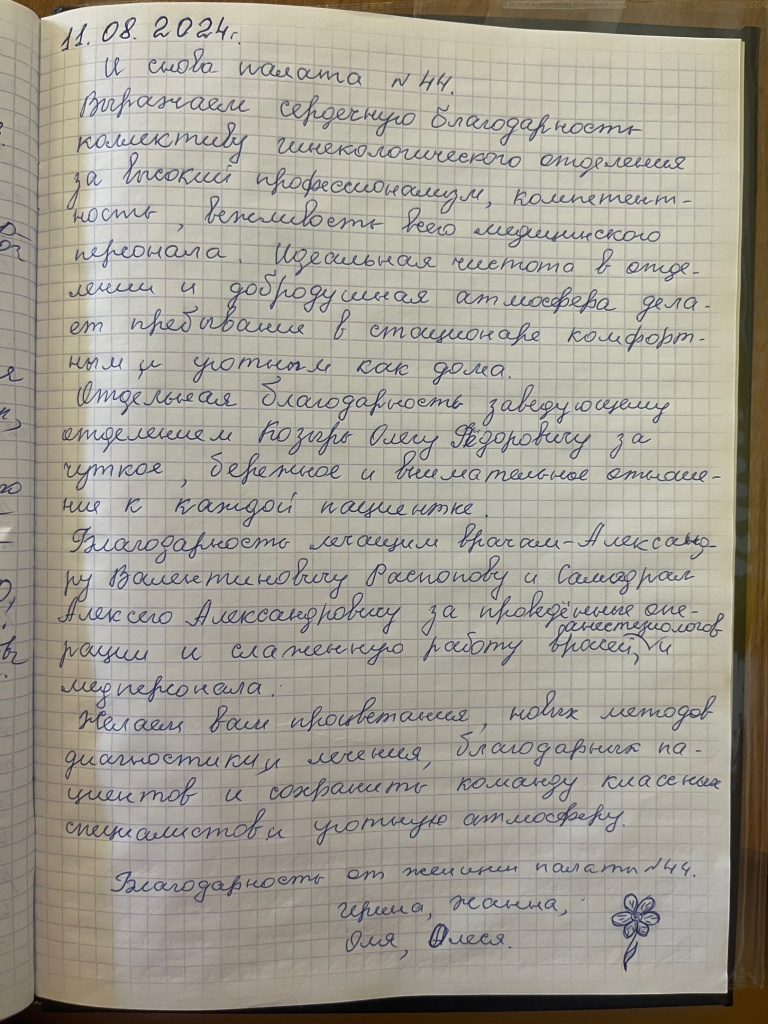 11.08.2024г.
И снова палата №44.
Выражаем сердечную благодарность
коллективу гинекологического отделения
за высокий профессионализм, компетент-
ность, вежливость всего медицинского
персонала. Идеальная чистота в отде-
лении и добродушная атмосфера дела-
ет пребывание в стационаре комфорт-
ным и уютным как дома.
Отдельная благодарность заведующему
отделением Козырь Олегу Фёдоровичу за
чуткое, бережное и внимательное отноше-
ние к каждой пациентке.
Благодарность лечащим врачам - Александ-
ру Валентиновичу Распопову и
Алексею Александровичу за проведённые опе-
анестезиологов
рации и слаженную работу врачей, и
медперсонала.
Желаем вам процветания, новых методов
диагностики и лечения, благодарных па-
циентов и сохранить команду классных
специалистов и уютную атмосферу.
Благодарность от женщин палаты №44.
Ирина, Жанна,
Оля, Олеся.